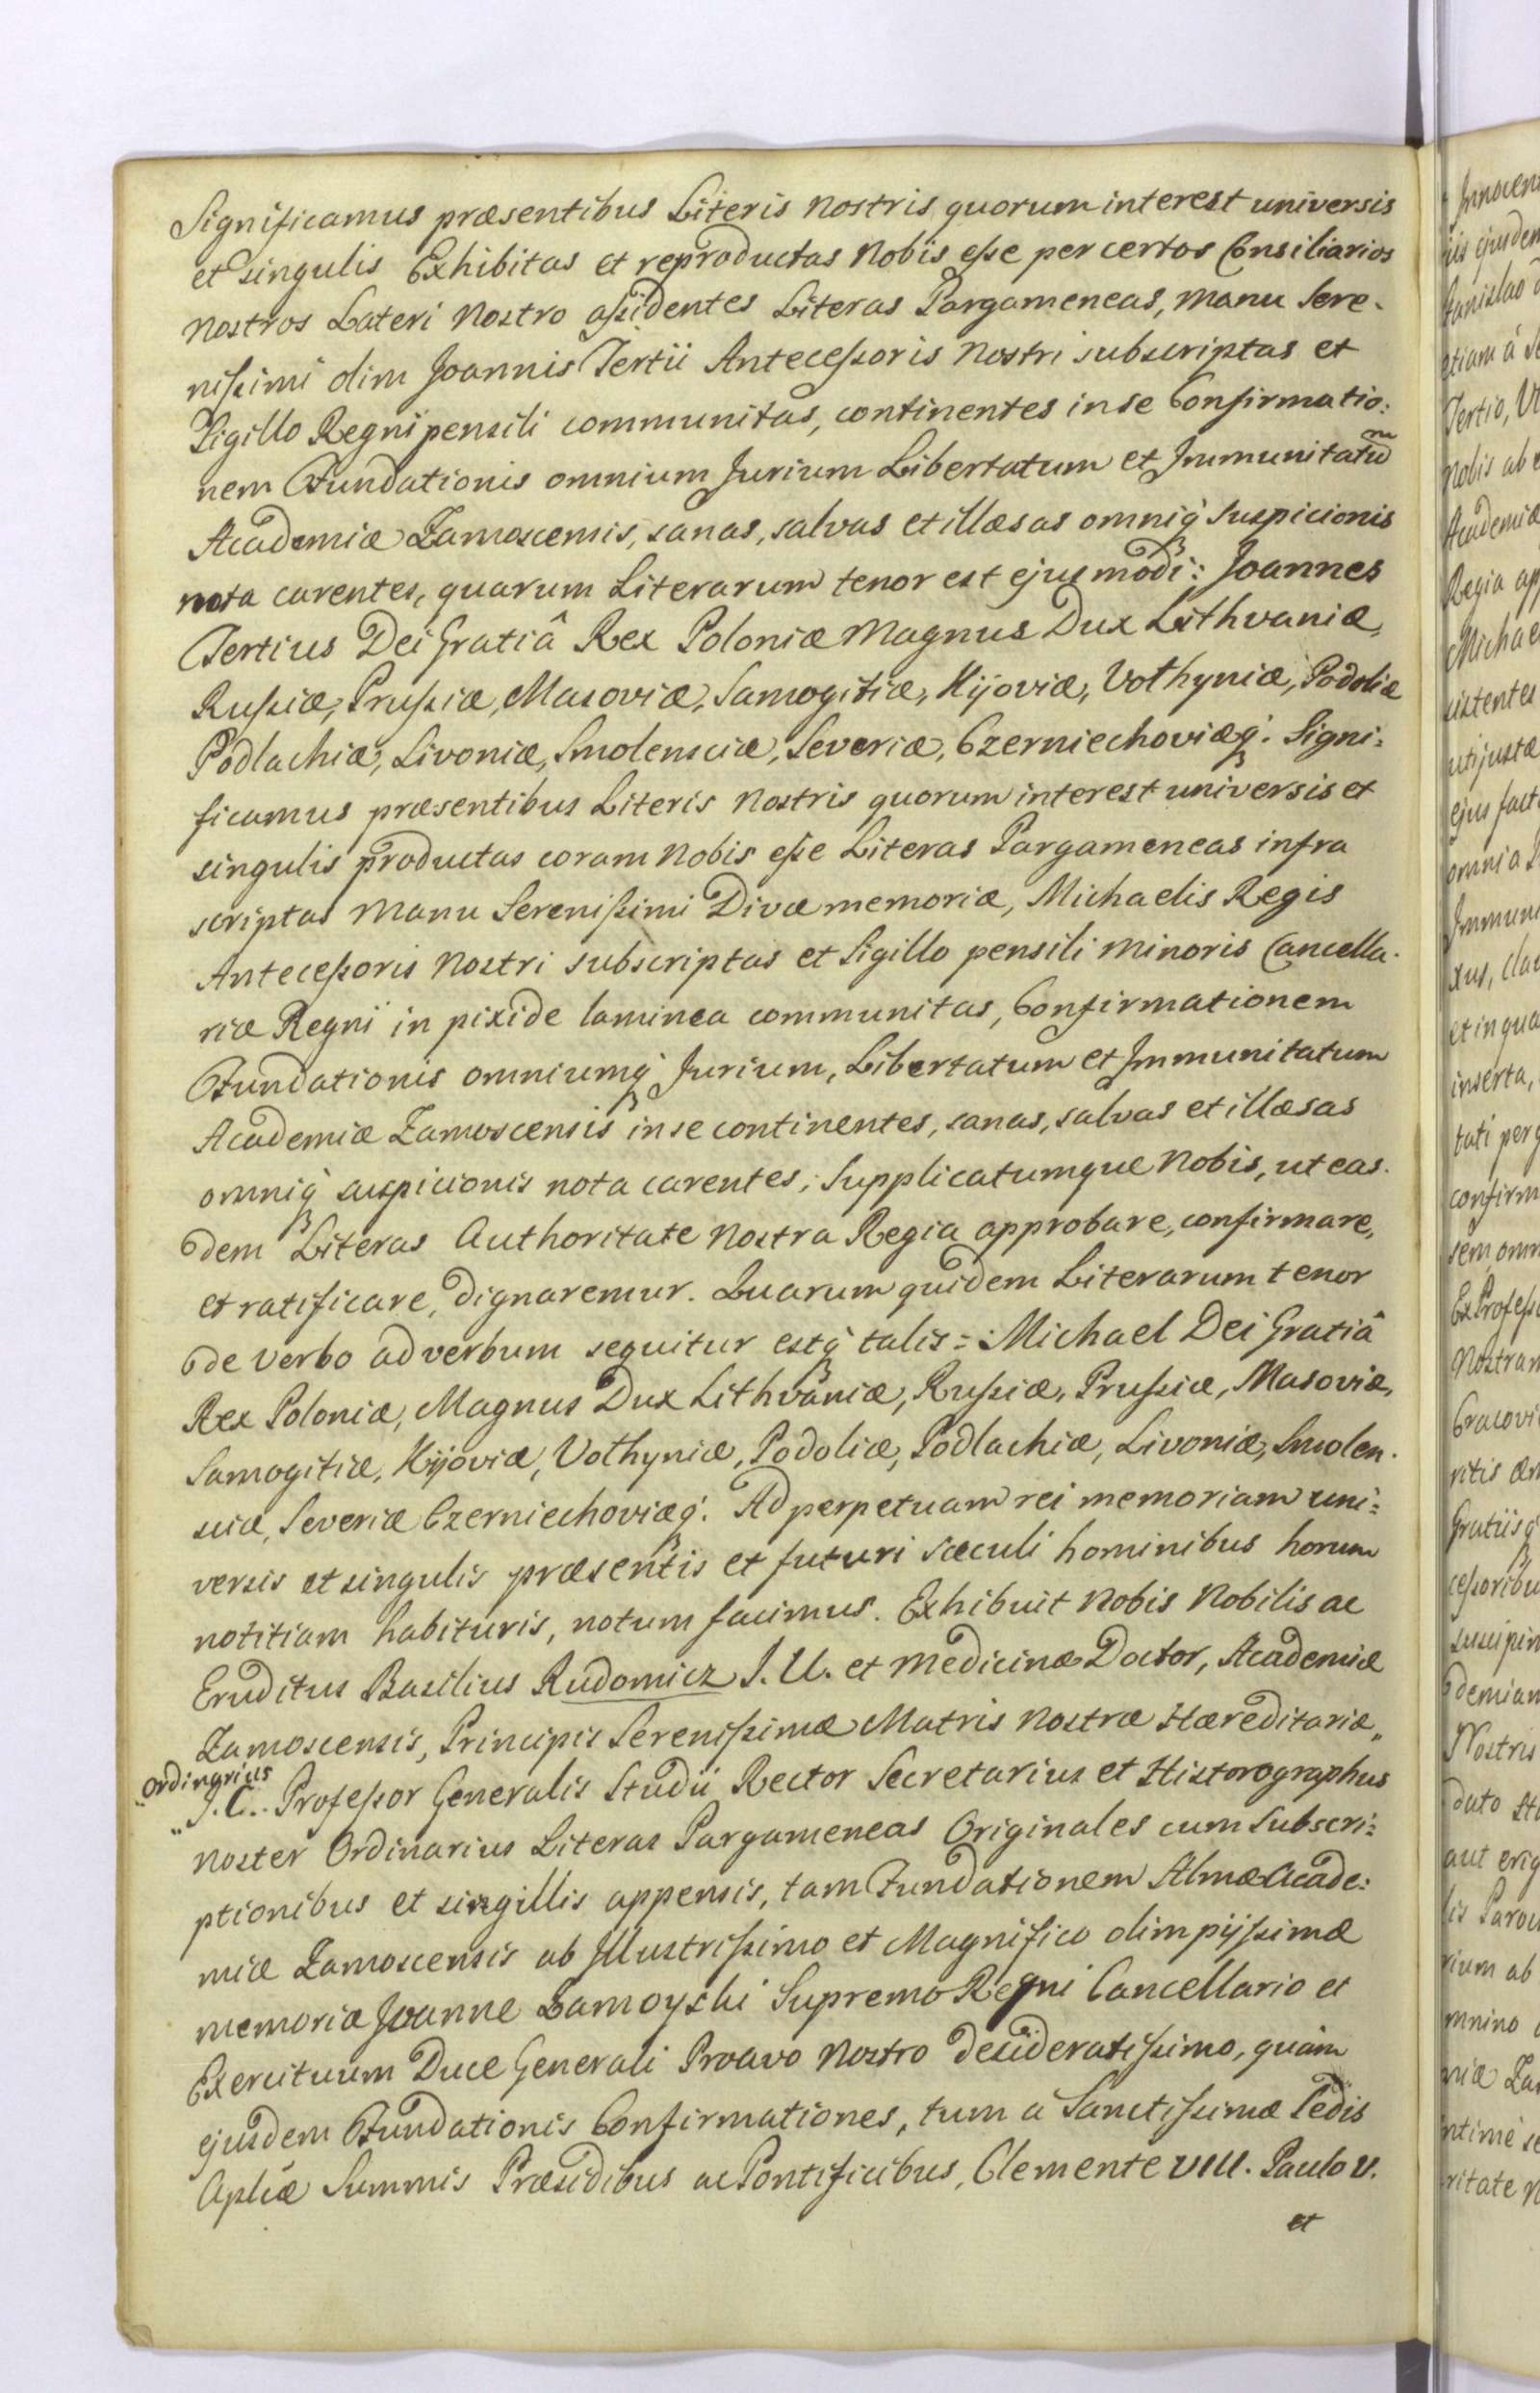 Significamus præsentibus Literis nostris quorum interest universis
et singulis Exhibitas et reproductas Nobis eſse per certos Consiliarios
nostros Lateri Nostro aſsidentes Literas Pargameneas, manu Sere-
niſsimi olim Joannis Tertii Anteceſsoris Nostri subscriptas et
Sigillo Regni pensili communitas, continentes in se Confirmatio:
nem Fundationis omnium Jurium Libertatum et Immunitatum
Academiæ Zamoscensis, sanas, salvas et illæsas omniq suspicionis
nota carentes, quarum Literarum tenor est ejusmodi: Joannes
Tertius Dei Gratiâ Rex Poloniæ Magnus Dux Lithvaniæ,
Ruſsiæ, Pruſsiæ, Masoviæ, Samogitiæ, Kijoviæ, Volhyniæ, Podoliæ
Podlachiæ, Livoniæ, Smolensciæ, Severiæ, Czerniechoviæq. Signi:
ficamus præsentibus Literis Nostris quorum interest universis et
singulis productas coram Nobis eſse Literas Pargameneas infra
scriptas manu Sereniſsimi Divæ memoriæ, Michaelis Regis
Anteceſsoris Nostri subscriptas et Sigillo pensili minoris Cancella-
riæ Regni in pixide laminea communitas, Confirmationem
Fundationis omniumq Jurium, Libertatum et Immunitatum
Academiæ Zamoscensis in se continentes, sanas, salvas et illæsas
omniq suspicionis nota carentes; Supplicatumque Nobis, ut eas-
dem Literas Authoritate Nostra Regia approbare, confirmare,
et ratificare, dignaremur. Quarum quidem Literarum tenor
de verbo ad verbum sequitur estq talis: Michael Dei Gratiâ
Rex Poloniæ, Magnus Dux Lithvaniæ, Ruſsiæ, Pruſsiæ, Masoviæ,
Samogitiæ, Kijoviæ, Volhyniæ, Podoliæ, Podlachiæ, Livoniæ, Smolen-
sciæ, Severiæ Czerniechoviæq. Ad perpetuam rei memoriam uni:
versis et singulis præsentis et futuri sæculi hominibus horum
notitiam habituris, notum facimus. Exhibuit Nobis Nobilis ac
Eruditus Basilius Rudomicz J. U. et Medicinæ Doctor, Academiæ
Zamoscensis, Principis Sereniſsimæ Matris Nostræ Hæreditariæ,,
Ordinarius
,,J. C. Profeſsor Generalis Studii Rector Secretarius et Historographus
noster Ordinarius Literas Pargameneas Originales cum Subscri:
ptionibus et singillis appensis, tam Fundationem Almæ Acade:
miæ Zamoscensis ab Illustriſsimo et Magnifico olim pijſsimæ
memoriæ Joanne Zamoyski Supremo Regni Cancellario et
Exercituum Duce Generali Proavo Nostro desideratiſsimo, quàm
ejusdem Fundationis Confirmationes, tum à Sanctiſsimæ Sedis
Aplicæ Summis Præsidibus ac Pontificibus, Clemente VIII. Paulo V.
et